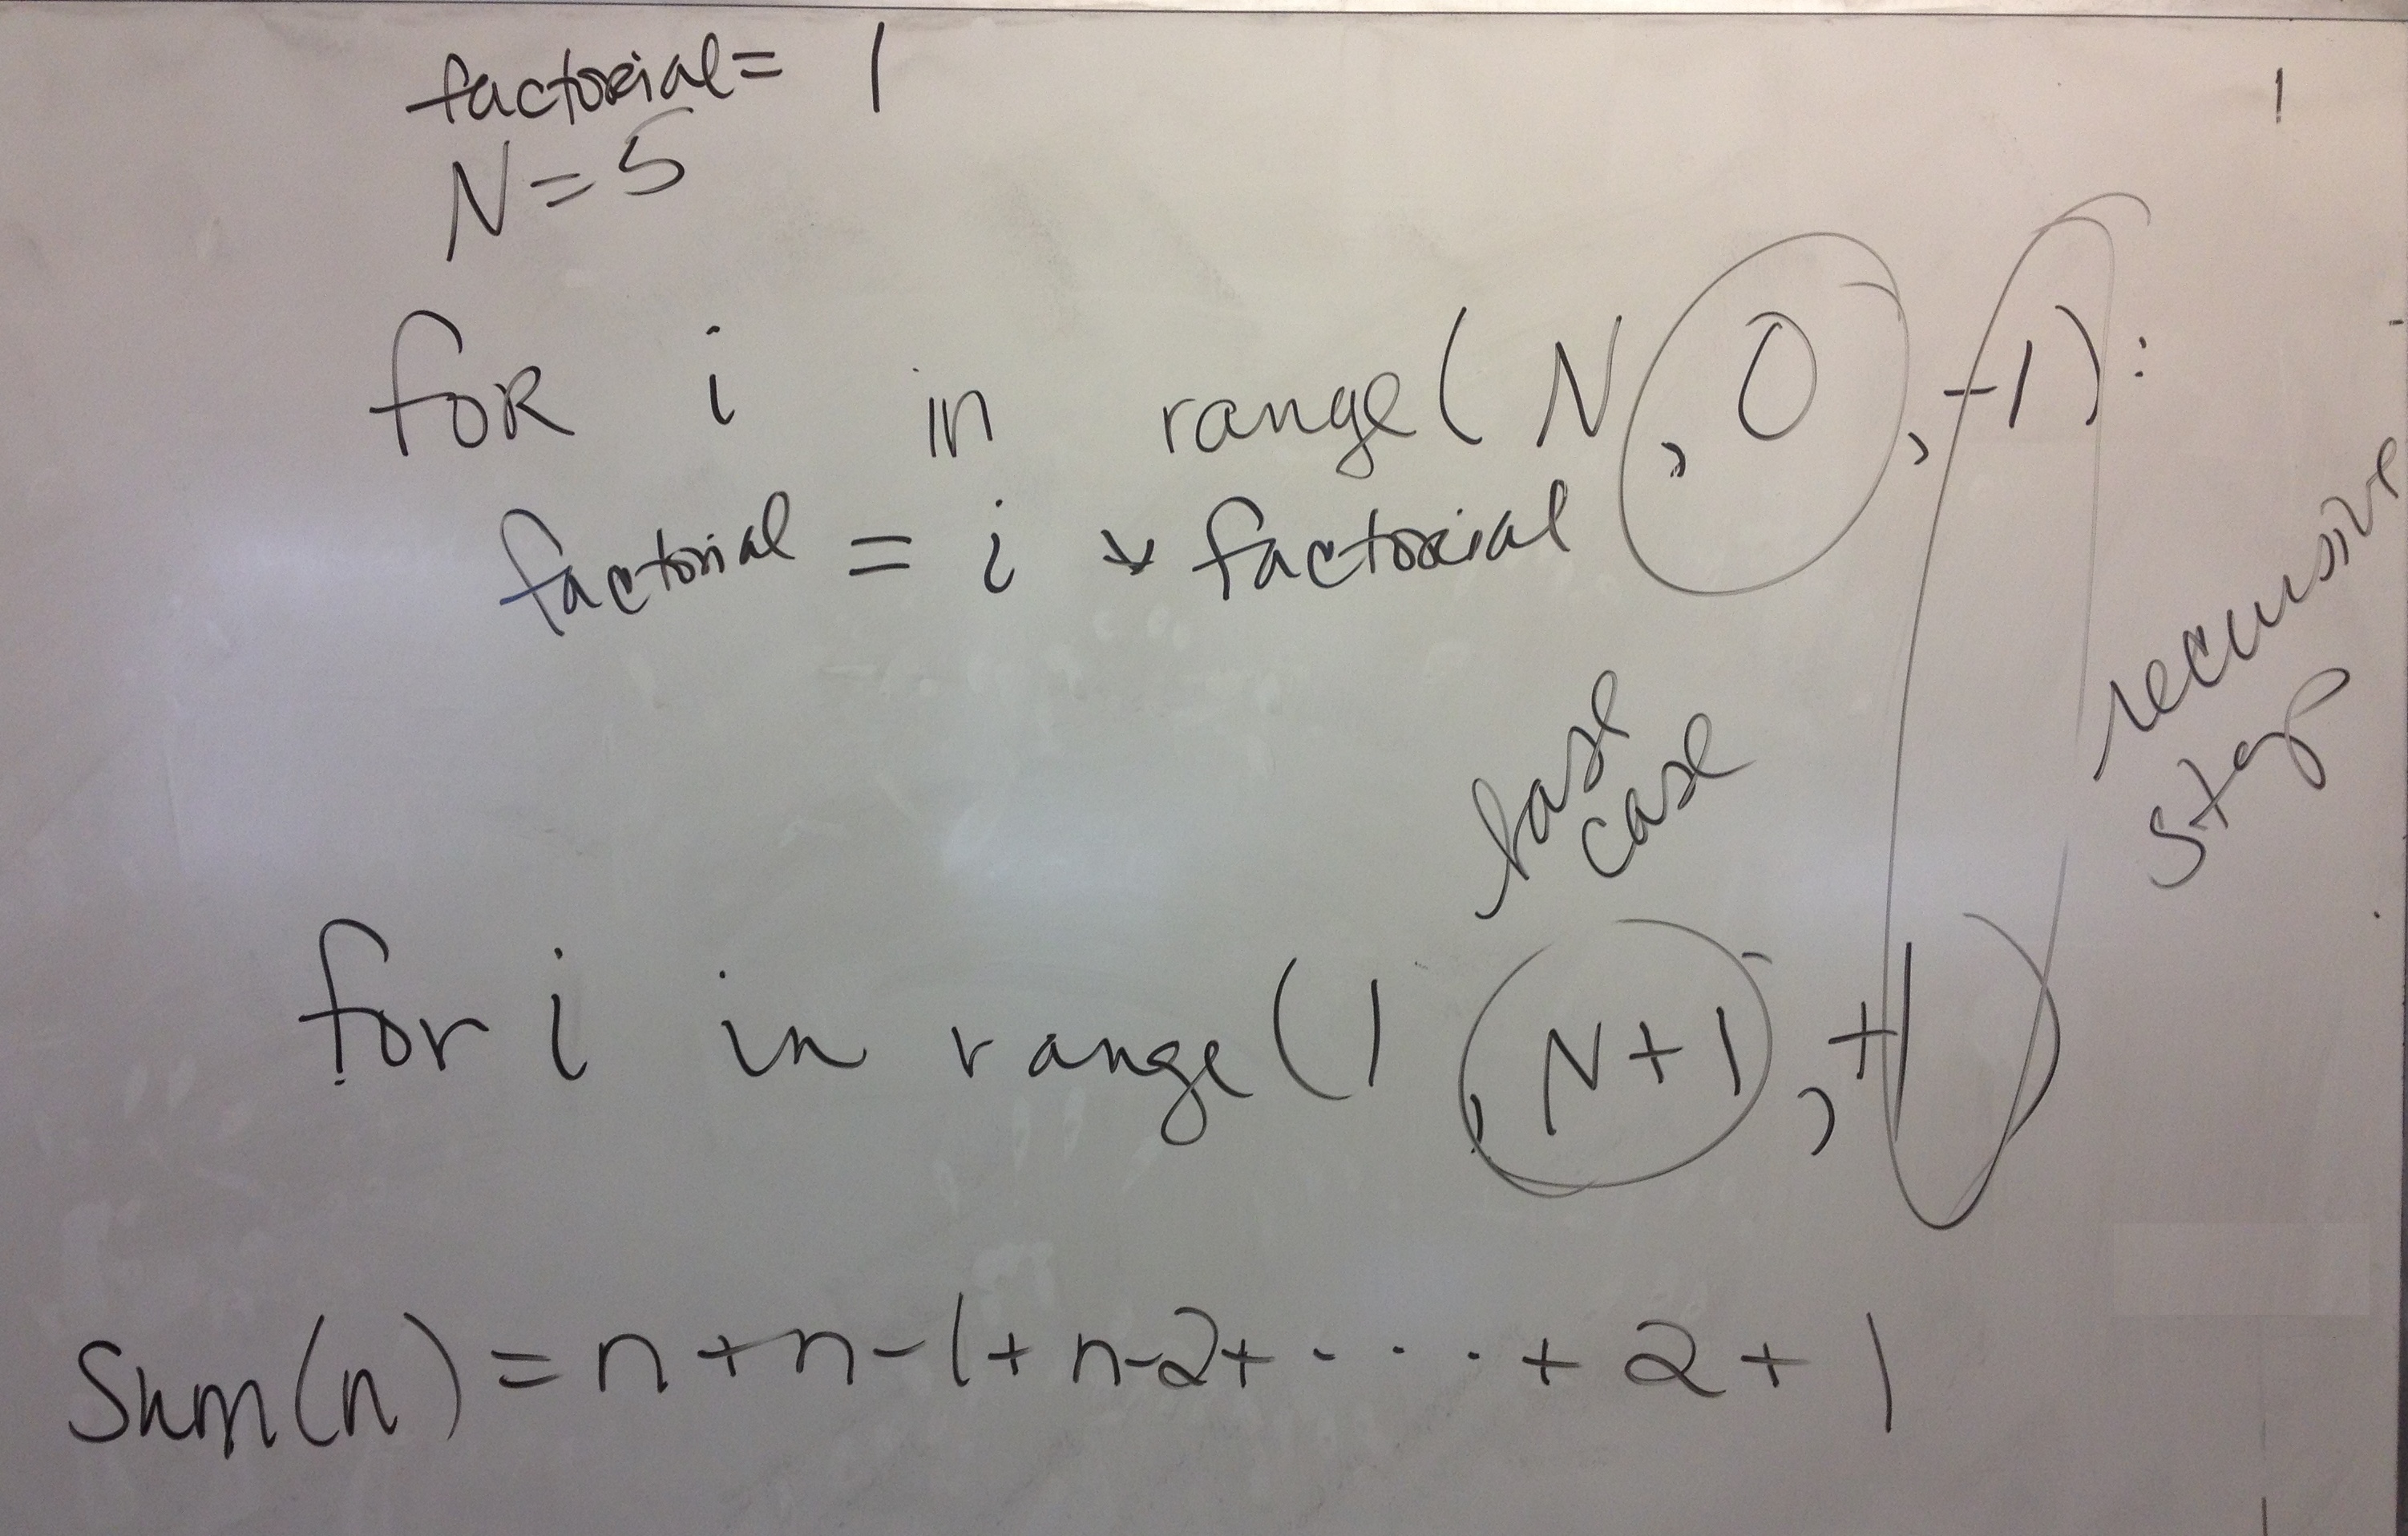 factorial = 1
N = 5
1
for i in range( N , 0 , -1 ):
factorial = i * factorial
recursive
step
base
case
for i in range ( 1 , N+1 , +1 )
Sum(n) = n + n-1 + n-2 + .... + 2 + 1